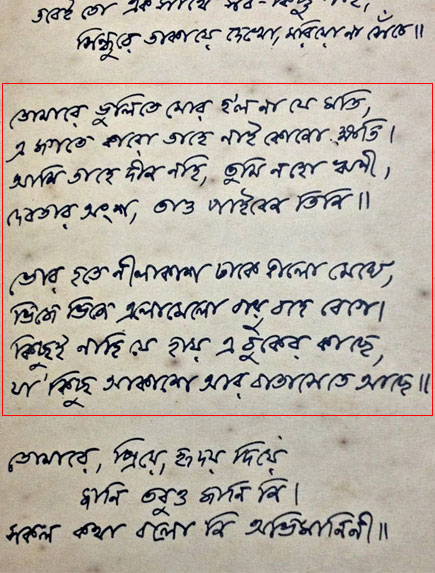 তবেই তো এক সাথে সব-কিছু পাই,
সিন্ধুরে তাকায়ে দেখো, মরিয়ো না সেঁচে॥
তোমারে ভুলিতে মোর হল না যে মতি,
এ জগতে কারো তাহে নাই কোনো ক্ষতি।
আমি তাহে দীন নহি, তুমি নহো ঋণী,
দেবতার অংশ, তাও পাইবেন তিনি॥
ভোর হতে নীলাকাশ ঢাকে কালো মেঘে,
ভিজে ভিজে এলোমেলো বায়ু বহে বেগে।
কিছুই নাহি যে হায় এ বুকের কাছে,
যা কিছু আকাশে আর বাতাসেতে আছে॥
তোমারে, প্রিয়ে, হৃদয় দিয়ে
জানি তবুও জানি নি।
সকল কথা বলো নি অভিমানিনী॥